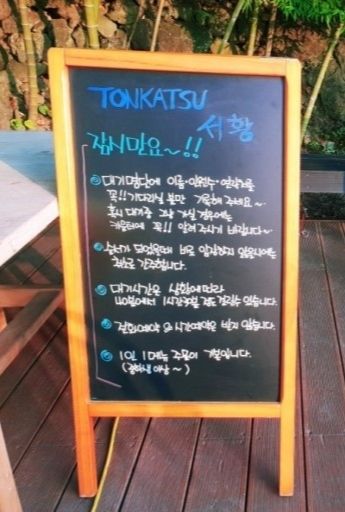 TONKATSU
서황
잠시만요~!!
대기명단에 이름·인원수·연락처를
꼭!! 기다리실 분만 기록해 주세요~
혹시 대기중 그냥 가실 경우에는
카운터에 꼭!! 알려주시기 바랍니다.
순서가 되었을때 바로 입장하지 않으시면
취소로 간주합니다.
대기시간은 상황에따라
40분에서 1시간정도 걸릴수 있습니다.
전화예약 및 시간예약은 받지 않습니다.
1인 1메뉴 주문이 기본입니다.